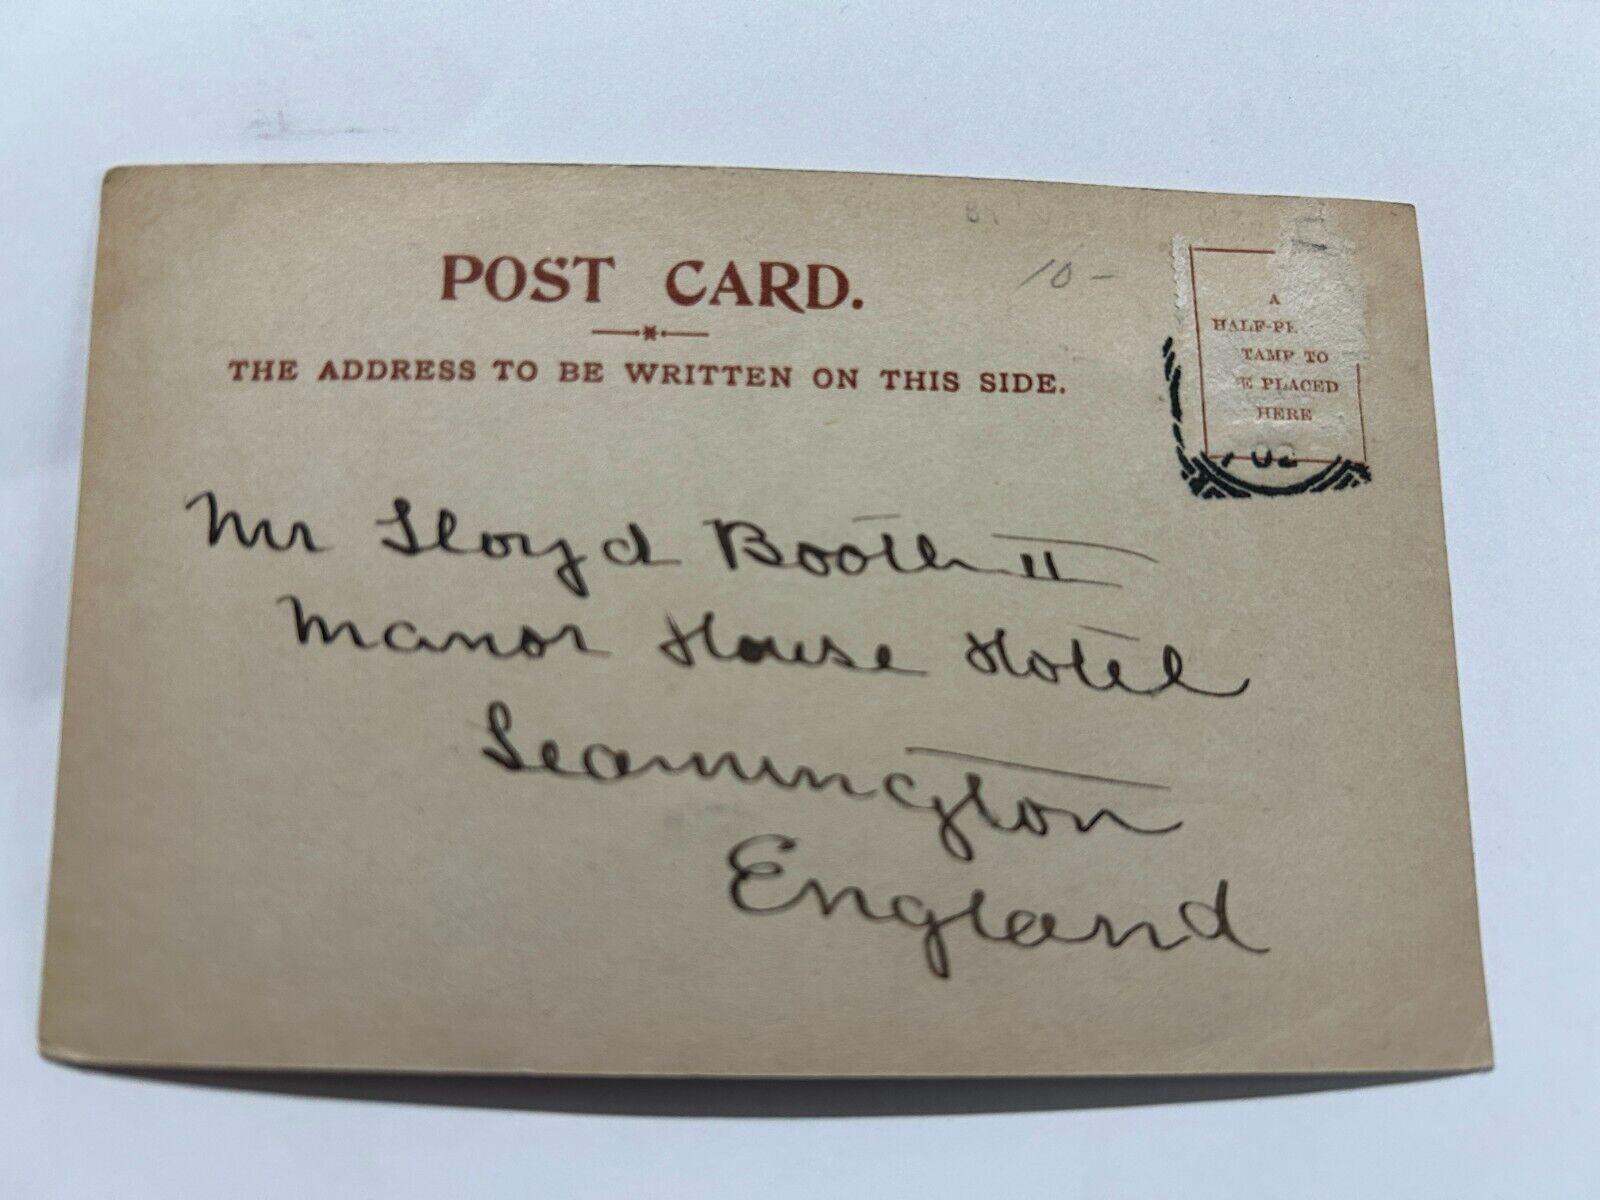 POST CARD.
10-
THE ADDRESS TO BE WRITTEN ON THIS SIDE.
A
HALF-PE
TAMP TO
E PLACED
HERE
02
Mr Lloyd Booth II
Manor House Hotel
Leamington
England